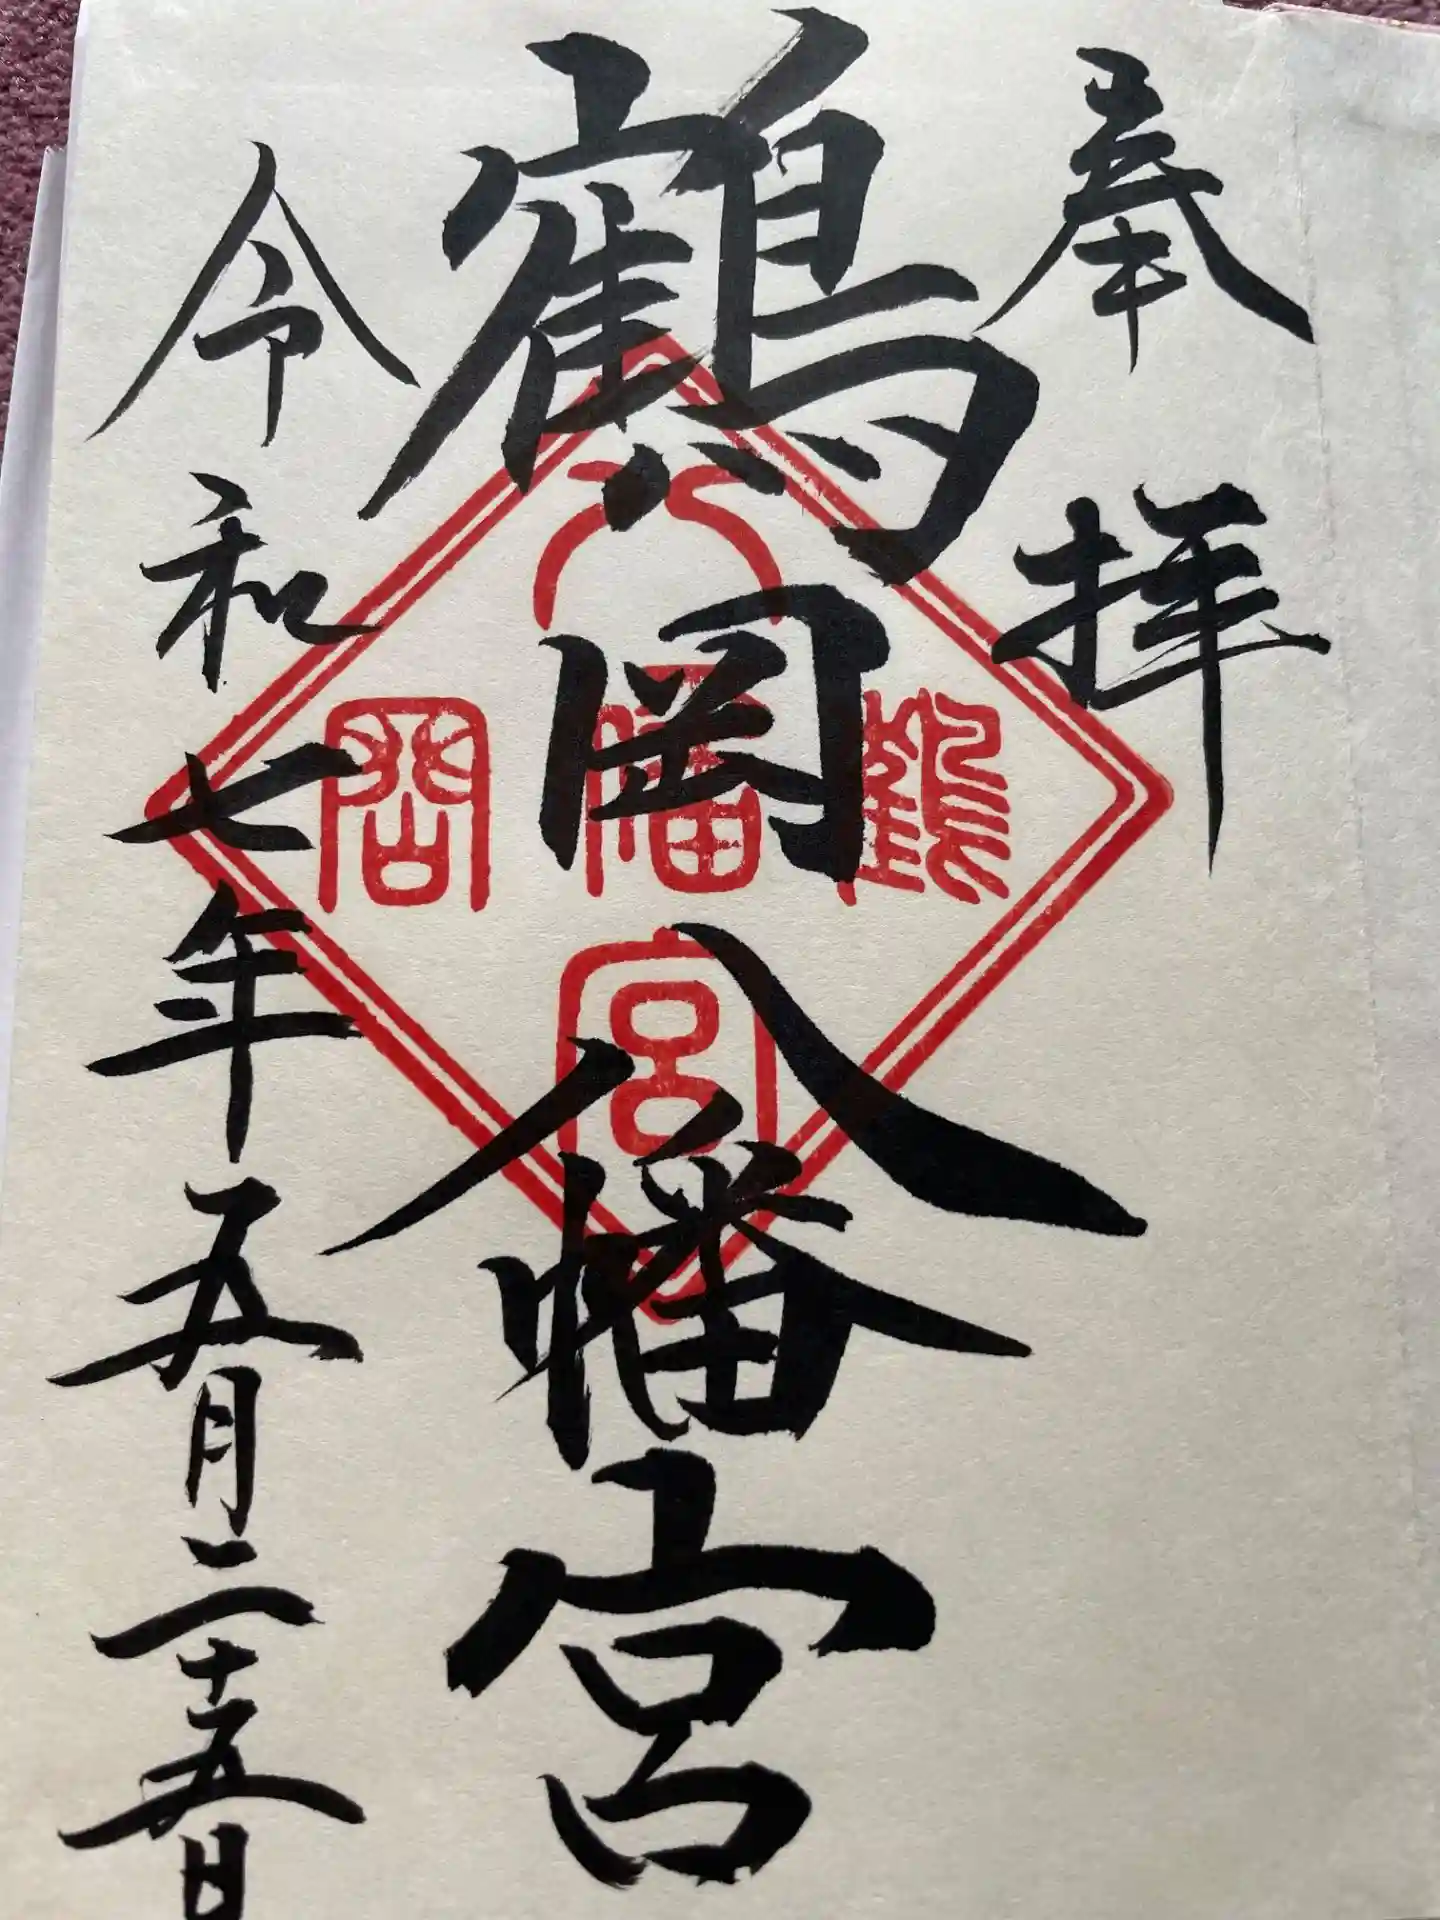 奉拝
鶴岡八幡宮
令和七年五月二十五日
鶴
八幡宮
岡